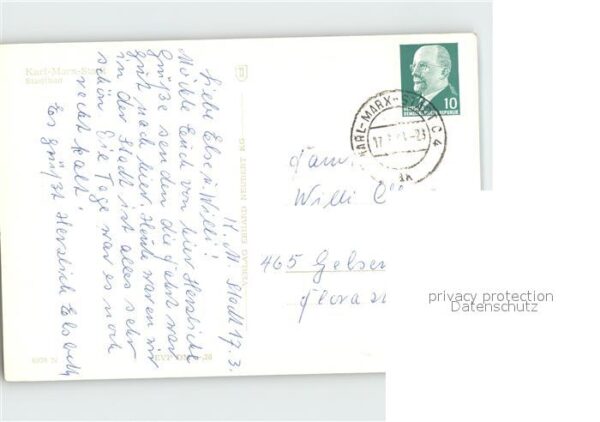 Karl-Marx-Stadt
Stadtbad
K. M. Stadt 17. 3.
Liebe Else u. Willi!
Möchte Euch von hier Herzliche
Grüße senden die Fahrt war
gut nach hier. Heute waren wir
in der Stadt ist alles sehr
schön. Die Tage war es noch
recht kalt!
Es grüßt Herzlich Elsbeth
VERLAG ERHARD NEUBERT KG
EVP DM
10
DEUTSCHE DEMOKRATISCHE REPUBLIK
KARL-MARX-STADT C 4
17.3.
-23
Fam.
Willi
465 Gelsen
Flora
privacy protection
Datenschutz